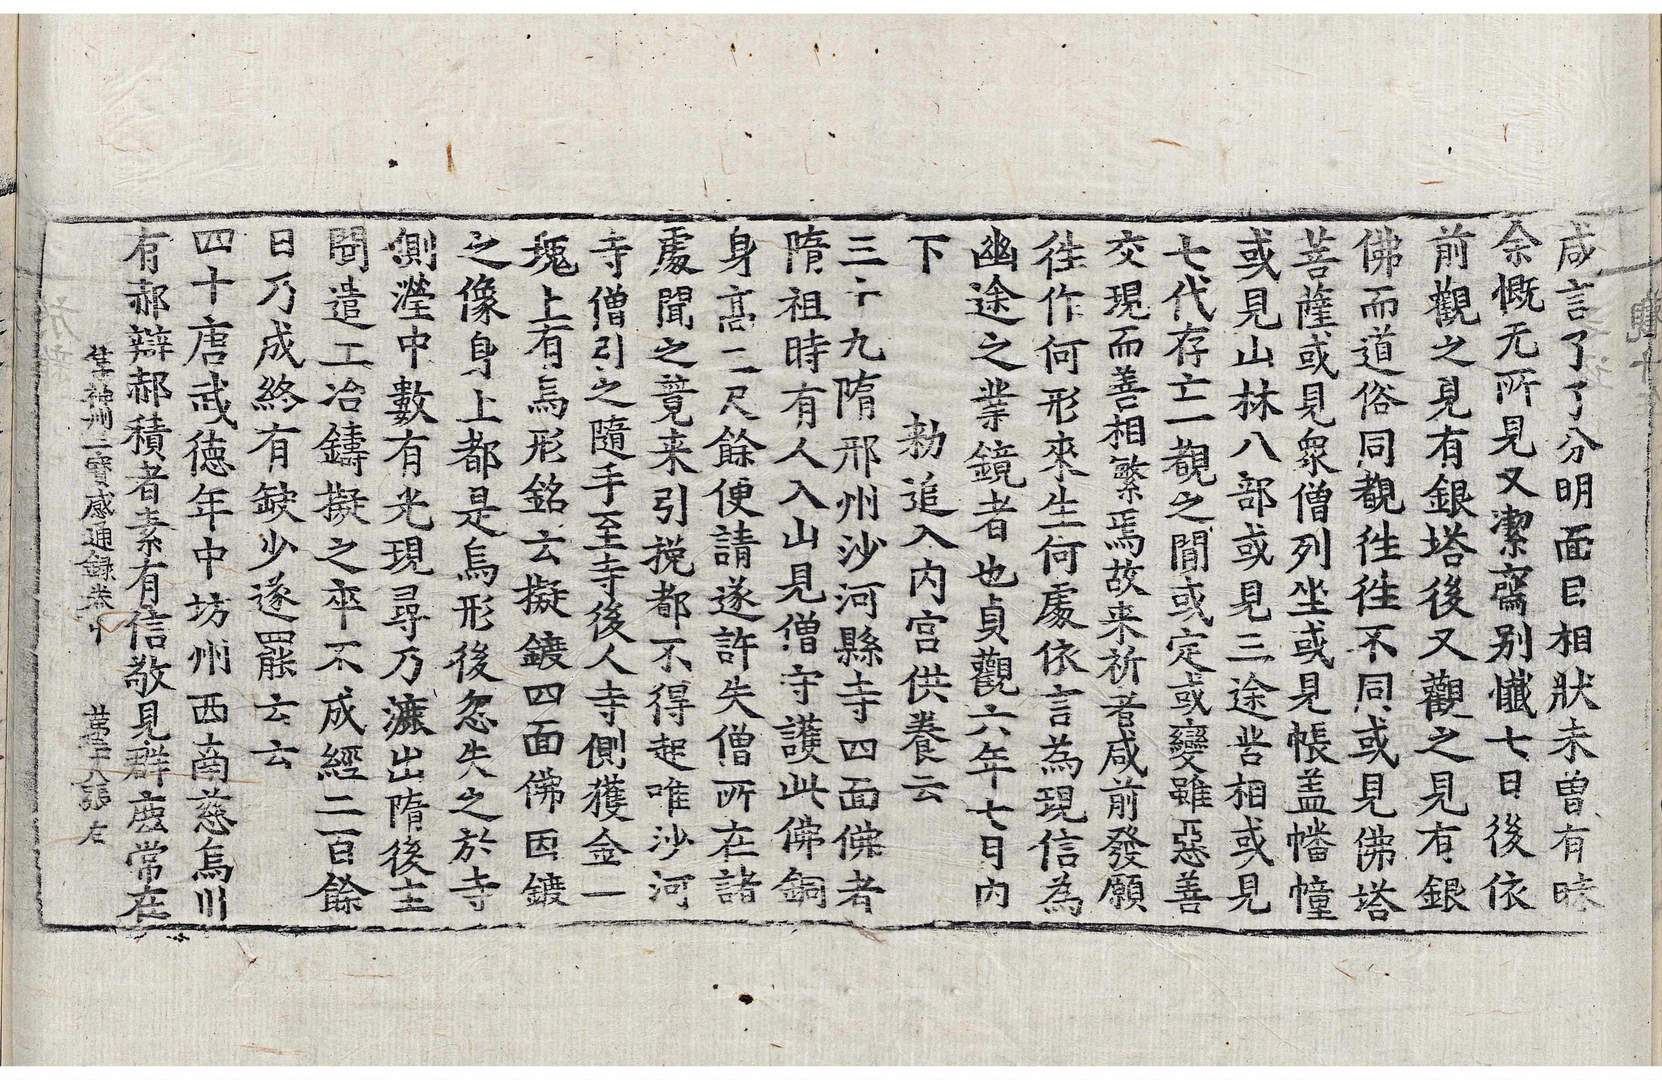 咸言了了分明面目相狀未曽有昧
余慨无所見又潔齋别懺七日後依
前觀之見有銀塔後又觀之見有銀
佛而道俗同觀徃徃不同或見佛塔
菩薩或見衆僧列坐或見帳盖幡幢
或見山林八部或見三途苦相或見
七代存亡一觀之間或定或變雖惡善
交現而善相繁焉故来祈者咸前發願
徃作何形來生何處依言為現信為
幽途之業鏡者也貞觀六年七月内
下　勑追入内宫供養云
三十九隋邢州沙河縣寺四面佛者
隋祖時有人入山見僧守護此佛銅
身高三尺餘便請遂許失僧所在諸
處聞之競来引挽都不得起唯沙河
寺僧引之隨手至寺後人寺側獲金一
塊上有烏形銘云擬鍍四面佛因鍍
之像身上都是烏形後忽失之於寺
側瀅中數有光現尋乃漉出隋後主
聞遣工冶鑄擬之卒不成經二百餘
日乃成終有缺少遂罷云云
四十唐武徳年中坊州西南慈烏川
有郝辯郝積者素有信敬見群鹿常在
集神州三寳感通録卷中　第二十八張　右